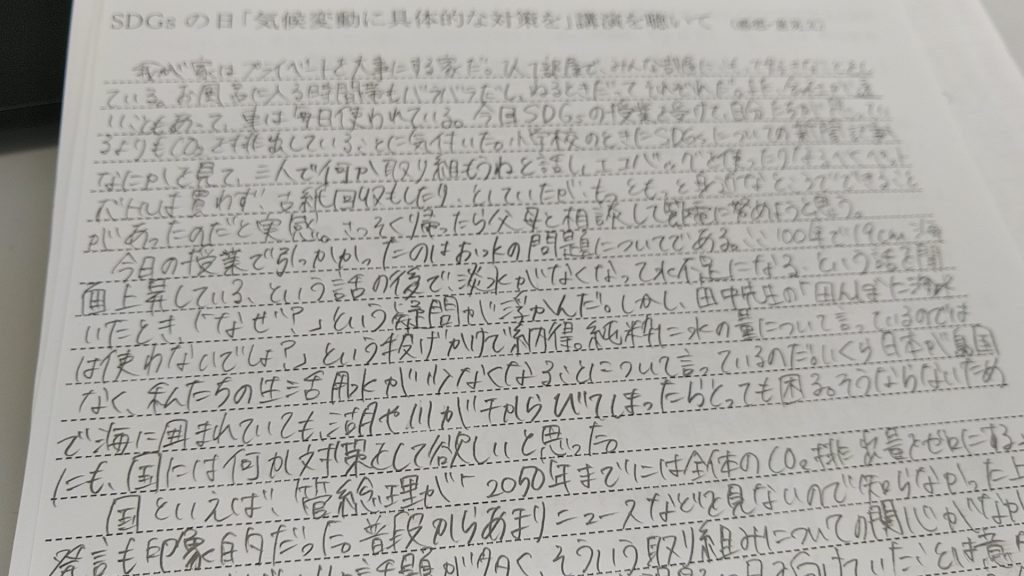 SDGsの日「気候変動に具体的な対策を」講演を聴いて (感想・意見文)
我が家はプライベートを大事にする家だ。1人1部屋で、みんな部屋に
ている。お風呂に入る時間帯もバラバラだし、ねるときだってそれぞれだ。また、
いこともあって、車は毎日使われている。今日SDGsの授業を受けて、自分たちが
るよりもCO₂を排出していることに気付いた。小学校のときSDGsについての新聞記事
なにかで見て、三人で何か取り組もうねと話し、エコバッグを使ったりなるべくペット
ボトルは買わず、古紙回収もしたり、としていたが、もっともっと身近なところでできること
があったのだと実感。さっそく帰ったら父母と相談して
に努めようと思う。
今日の授業で引っかかったのはお水の問題についてである。100年で19cm海
面上昇している、という話の後で、淡水がなくなって水不足になる、という話を聞
いたとき、「なぜ?」という疑問が浮かんだ。しかし、田中先生の「田んぼに海水
は使わないでしょ?」という投げかけで納得。純粋に水の量について言っているのでは
なく、私たちの生活用水が少なくなることについて言っているのだ。いくら日本が島国
で海に囲まれていても、湖や川が干からびてしまったらとても困る。そうならないため
にも、国には何か対策をして欲しいと思った。
国といえば、「菅総理が」2050年までには全体のCO₂排出量をゼロにする
発言も印象的だった。普段からあまりニュースなどを見ないので知らなかった上
話題が多く、そういう取り組みについての関心がなか